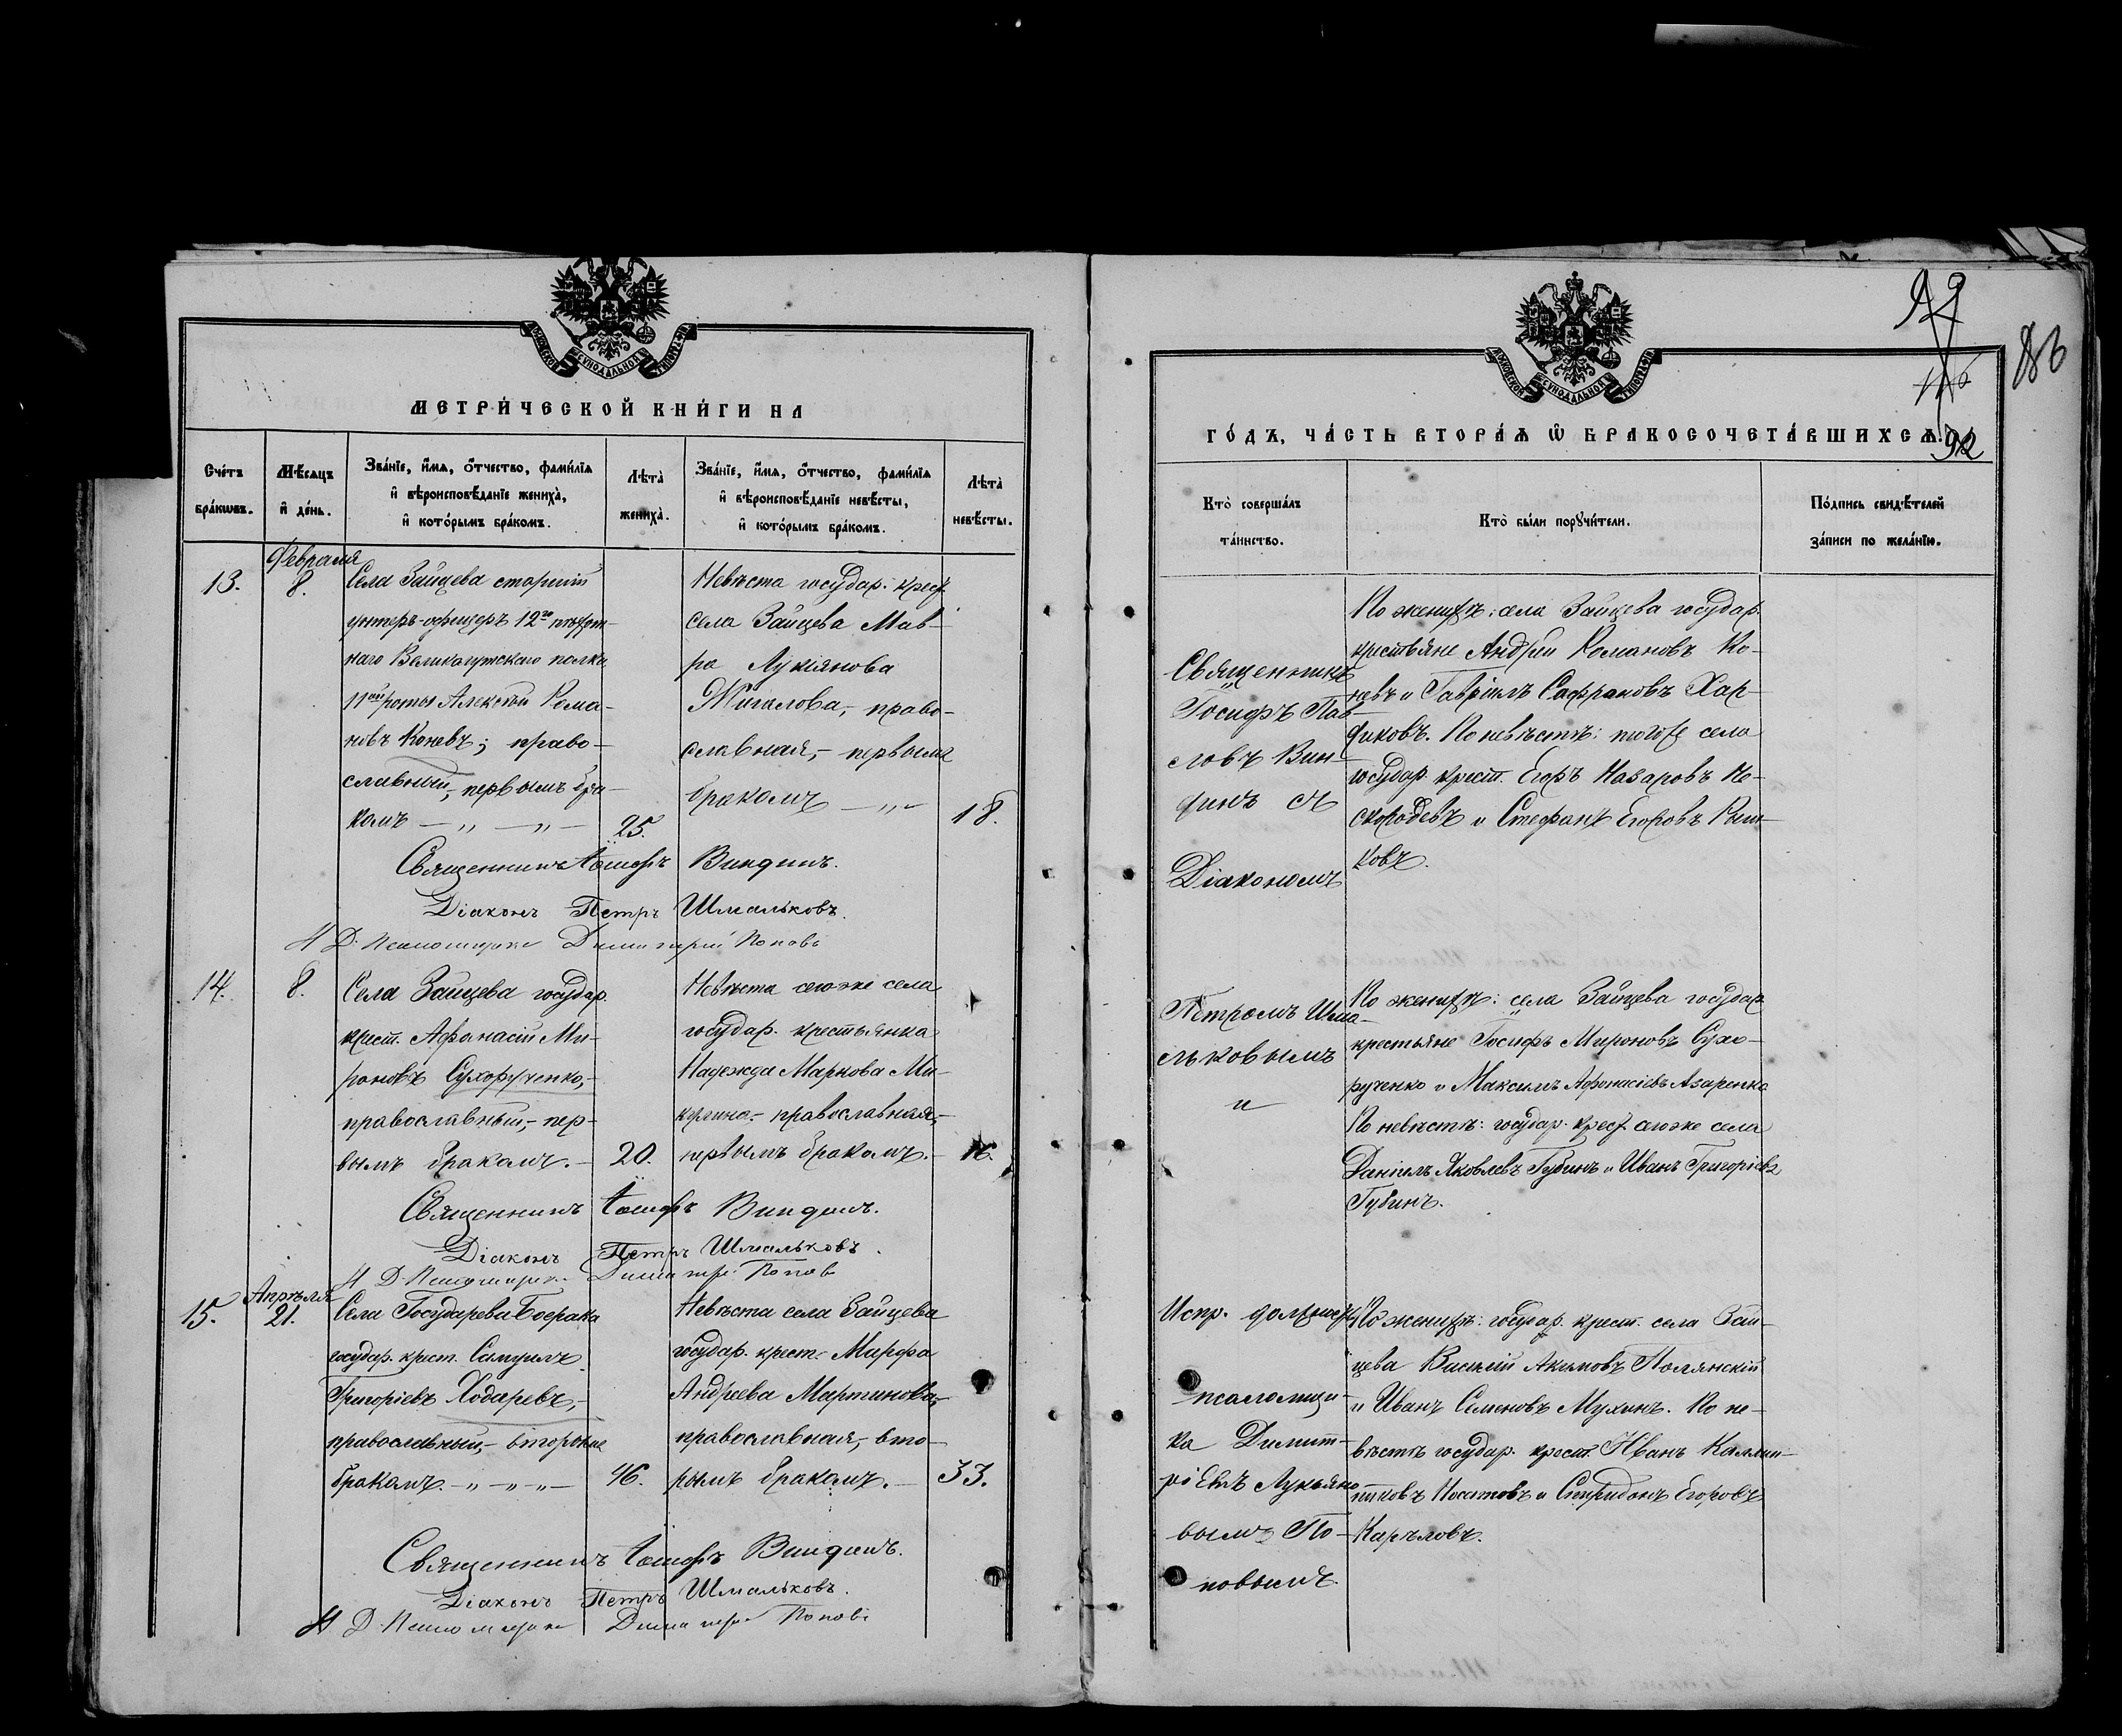 МЕТРИ́ЧЕСКОЙ КНИ́ГИ НА
Сче́тъ бра́кѡвъ.
Мѣ́сѧцъ и҆ де́нь.
Зва́нїе, и҆́мѧ, ѻ҆́тчество, фами́лїѧ и҆ вѣроисповѣ́данїе жениха̀, и҆ кото́рымъ бра́комъ.
Лѣ́та̀ жениха̀.
Зва́нїе, и҆́мѧ, ѻ҆́тчество, фами́лїѧ и҆ вѣроисповѣ́данїе невѣ́сты, и҆ кото́рымъ бра́комъ.
Лѣ́та̀ невѣ́сты.
Февраля
13.
8.
Села Зайцева старшій
унтеръ-офицеръ 12го пѣхот-
наго Великолуцкаго полка
11ой роты Алексѣй Рома-
новъ Коневъ; право-
славный, первымъ бра-
комъ — „ — „ —
25.
Невѣста государ. крест.
села Зайцева Мав-
ра Лукіянова
Жигалова, право-
славная, первымъ
бракомъ — „ —
18.
Священникъ Іосифъ Виндинъ.
Діаконъ Петръ Шмальковъ.
И Д. Псаломщика Димитрій Поповъ
14.
8.
Села Зайцева государ.
крест. Афанасій Ми-
роновъ Сухорученко,
православный, пер-
вымъ бракомъ.
20.
Невѣста сегоже села
государ. крестьянка
Надежда Маркова Ми-
православная,
первымъ бракомъ.
16.
Священникъ Іосифъ Виндинъ.
Діаконъ Петръ Шмальковъ.
И Д. Псаломщика Димитрій Поповъ
Апрѣля
15.
21.
Села Государева Боерака
государ. крест. Самуилъ
Григоріевъ Ходаревъ,
православный, вторымъ
бракомъ. — „ — „ — „ —
46.
Невѣста села Зайцева
государ. крест. Марфа
Андреева Мартинова,
православная, вто-
рымъ бракомъ.
33.
Священникъ Іосифъ Виндинъ.
Діаконъ Петръ Шмальковъ.
И Д. Псаломщика Димитрій Поповъ
92
116
86
ГО́ДЪ, ЧА́СТЬ ВТОРА́Ѧ Ѽ БРАКОСОЧЕТА́ВШИХСѦ.
92
Кто̀ соверша́лъ та́инство.
Кто̀ бы́ли порꙋчи́тели.
По́дпись свидѣ́телей за́писи по жела́нїю.
Священникъ
Іосифъ Пав-
ловъ Вин-
динъ съ
Діакономъ
Петромъ Шма-
льковымъ
и
Испр. должность
псаломщи-
ка Димит-
ріемъ Лукьяно-
вымъ По-
повымъ.
По женихѣ: села Зайцева государ.
крестьяне Андрей Романовъ Ко-
невъ и Гавріилъ Сафроновъ Хар-
диковъ. По невѣстѣ: того же села
государ. крест. Егоръ Назаровъ Не-
скородевъ и Стефанъ Егоровъ Рыж-
ковъ.
По женихѣ: села Зайцева государ.
крестьяне Іосифъ Мироновъ Сухо-
рученко и Максимъ Афонасіевъ Азаренко
По невѣстѣ: государ. крест. сегоже села
Даніилъ Яковлевъ Губинъ и Иванъ Григоріевъ
Губинъ.
По женихѣ: государ. крест. села Зай-
цева Василій Акимовъ Полянскій
и Иванъ Семеновъ Мухинъ. По не-
вѣстѣ государ. крест. Иванъ Каллин-
никовъ Носатовъ и Спиридонъ Егоровъ
Карѣловъ.